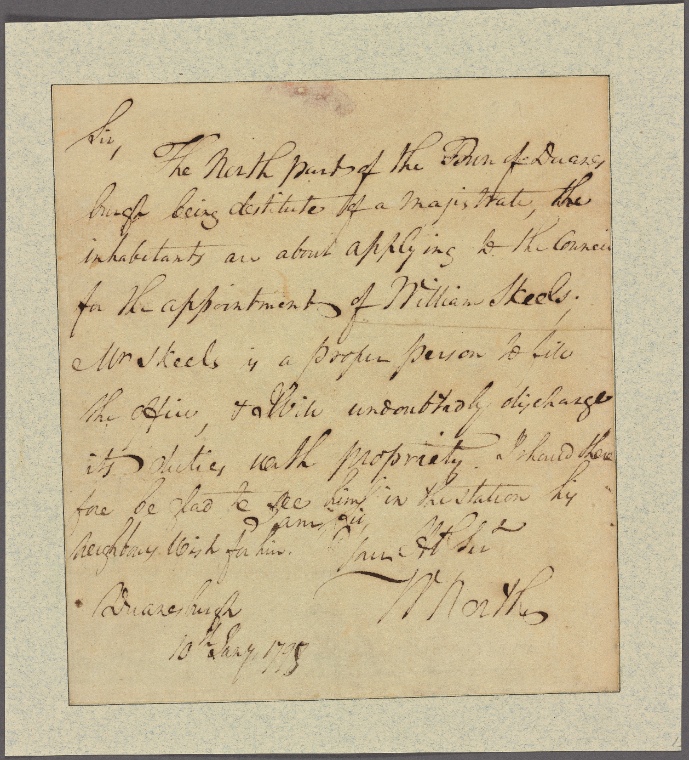 Sir,
The North part of the Town of Duanes
burgh being destitute of a magistrate, the
inhabitants are about applying to the Council
for the appointment of William Skeels.
Mr Skeels is a proper person to fill
the office, & Will undoubtedly discharge
its duties with propriety. I should there
fore be glad to see him in the station his
neighbours Wish for him. I am, Sir,
Your Ob Sert
W North
Duanesburgh
10th Jany. 1795